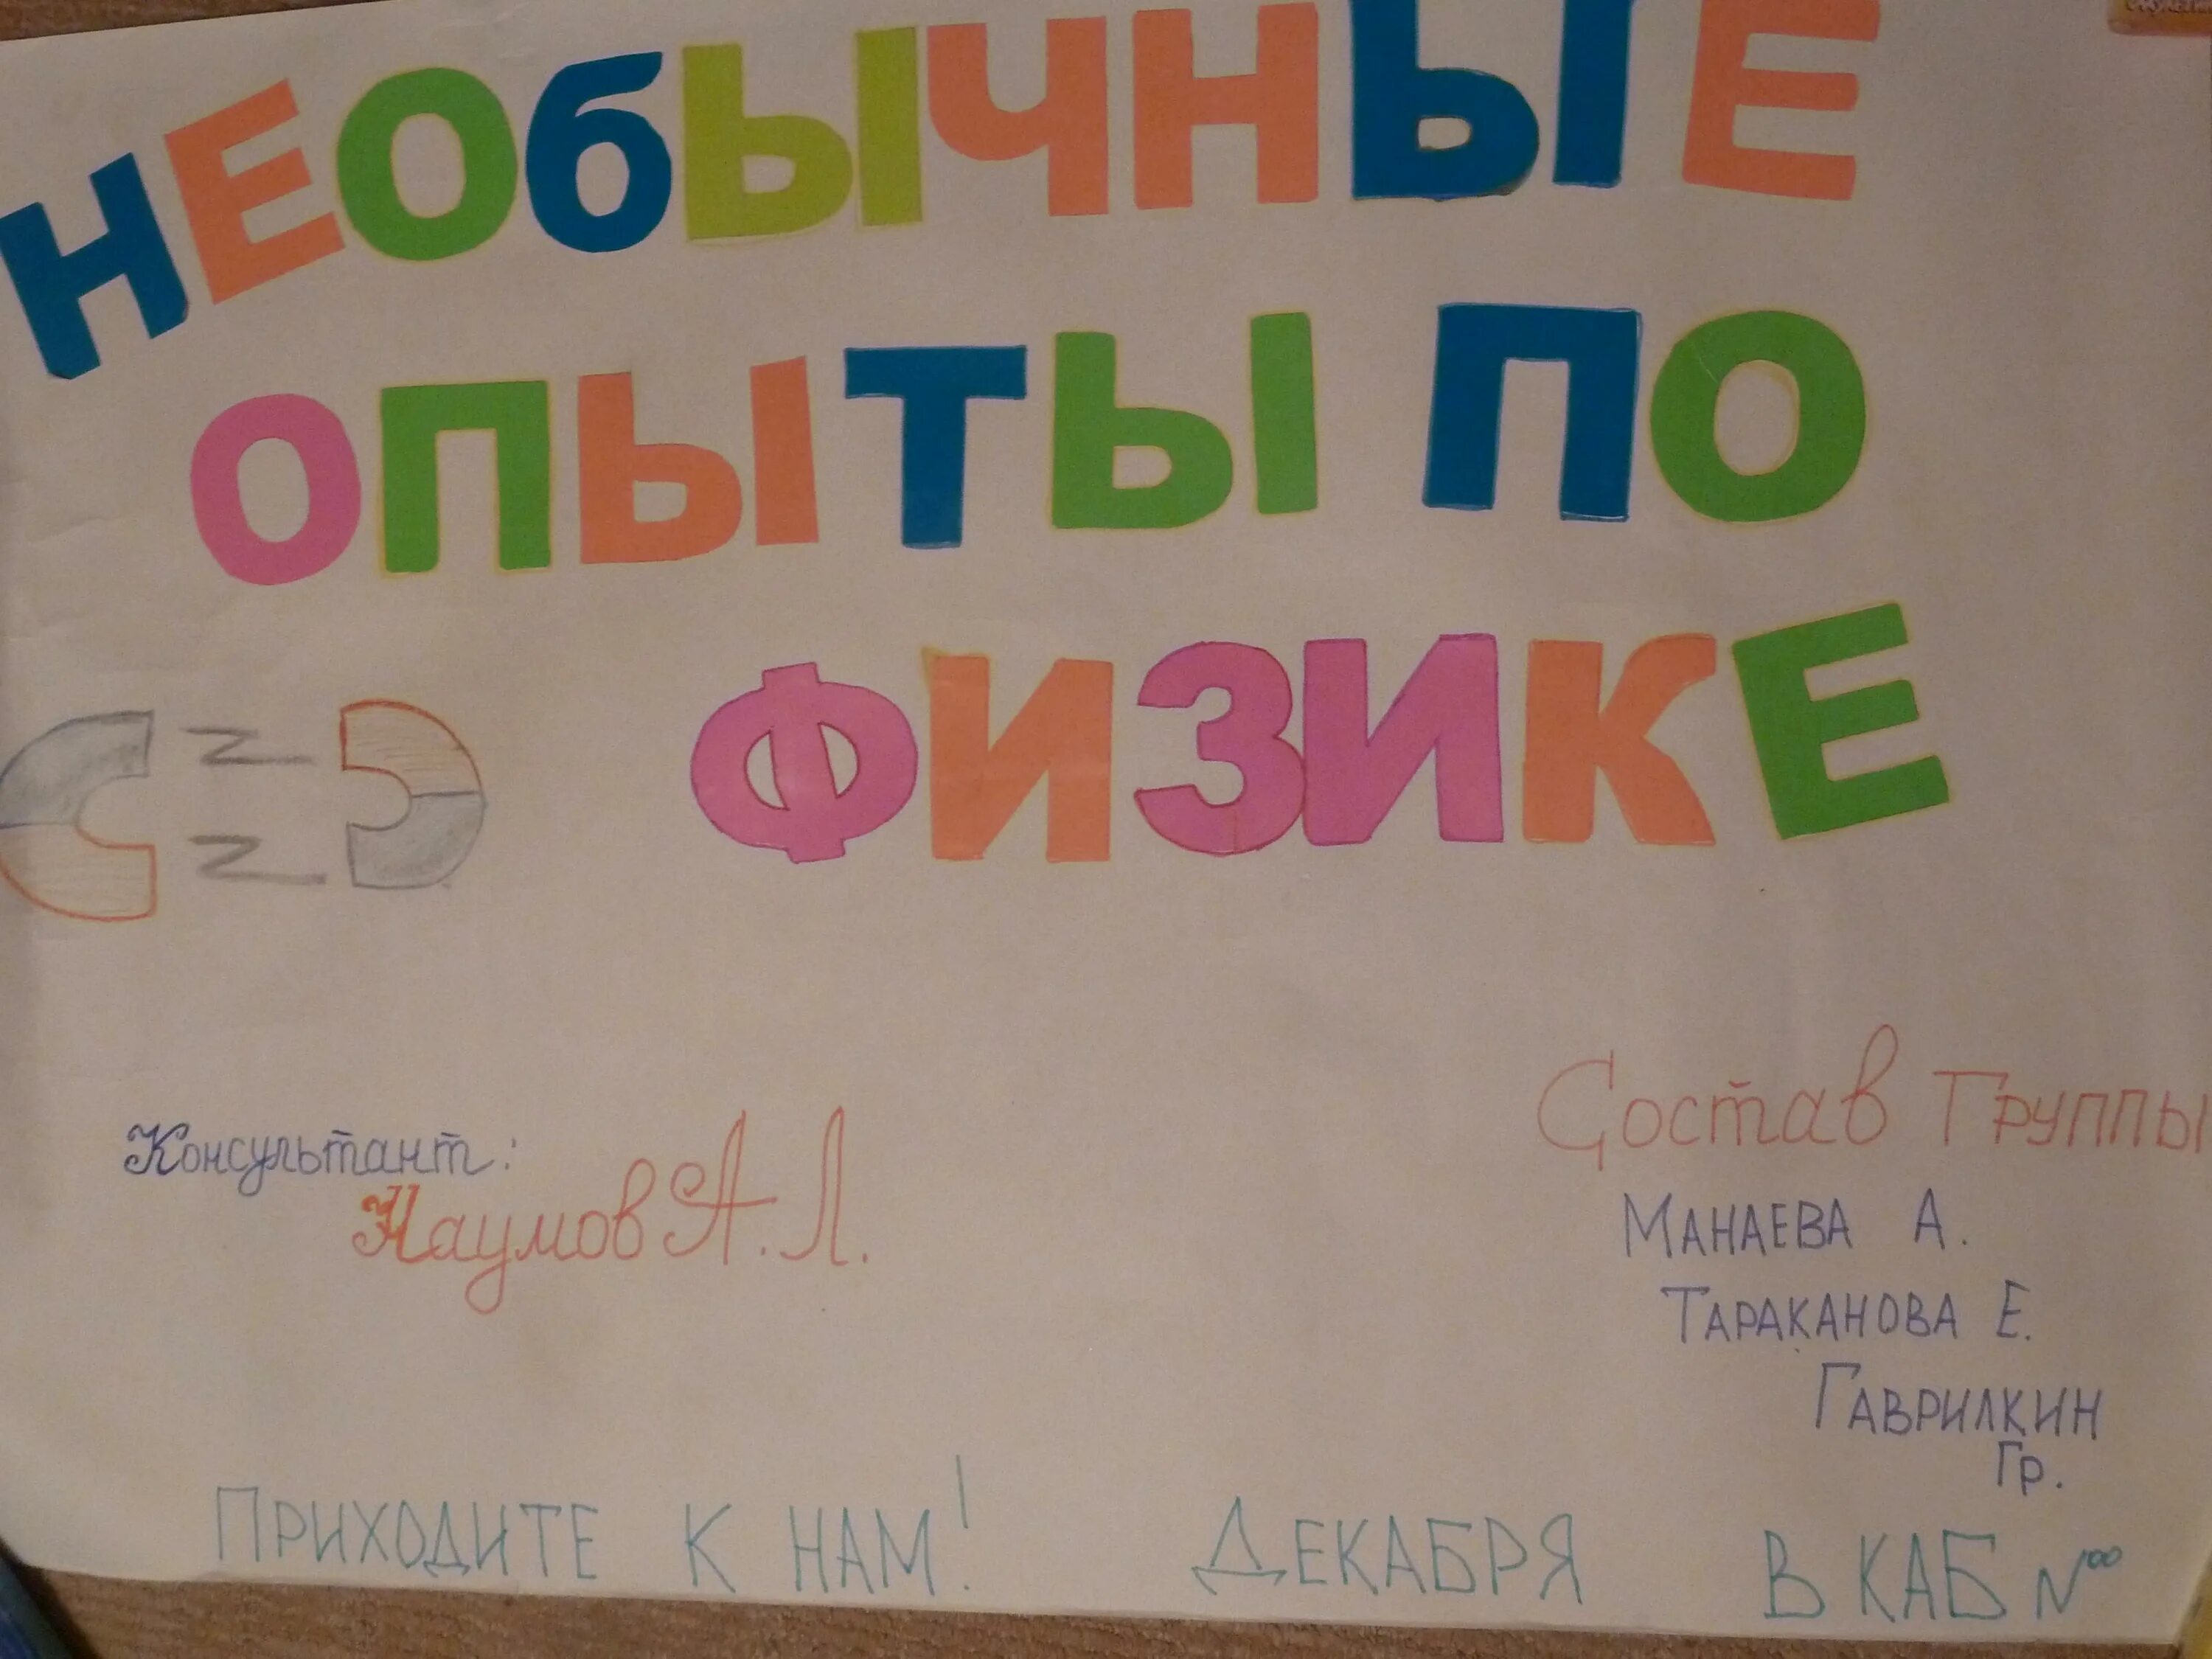 НЕОбЫЧНЫЕ
ОПЫТЫ ПО
ФИЗИКЕ
Консультант:
Наумов А.Л.
Состав Группы
МАНАЕВА А.
ТАРАКАНОВА Е.
ГАВРИЛКИН
Гр.
ПРИХОДИТЕ К НАМ! ДЕКАБРЯ В КАБ №